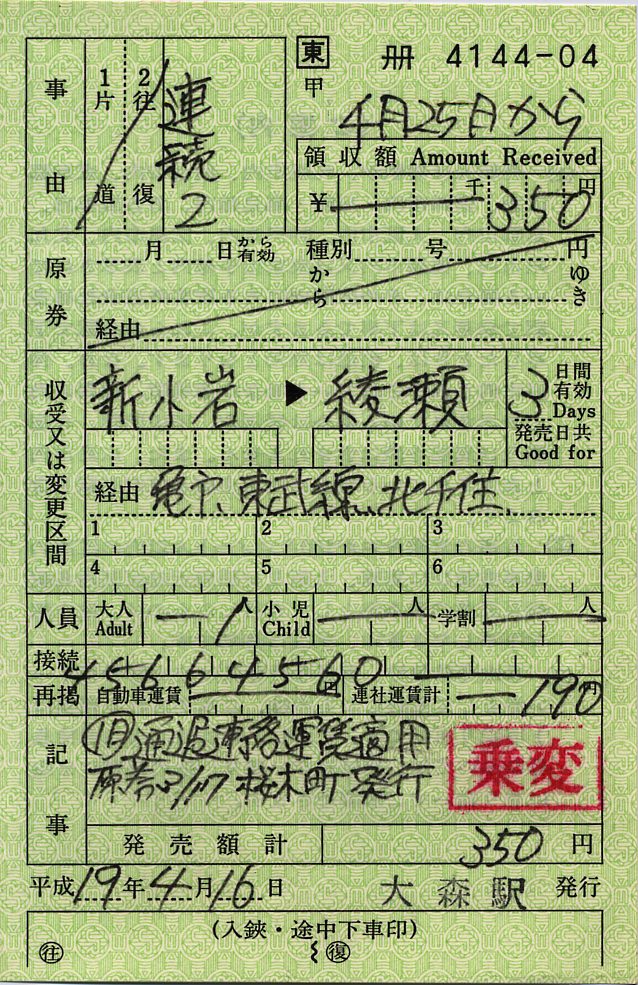 東 冊 4144-04
甲
4月25日から
事由
1片道
2往復
連続2
領収額 Amount Received
¥ 千 350円
原券
月 日から有効 種別 号 円
から ゆき
経由
収受又は変更区間
新小岩 ▶ 綾瀬
3日間有効 Days
発売日共 Good for
経由 亀戸、東武線、北千住
1 2 3
4 5 6
人員 大人 Adult 1人 小児 Child 人 学割 人
接続 456 6 4560
再掲 自動車運賃 円 連社運賃計 190円
記事
(1日)通過連絡運賃適用
原券 桜木町発行
乗変
発売額計 350円
平成19年4月16日 大森駅 発行
(入鋏・途中下車印)
往 復